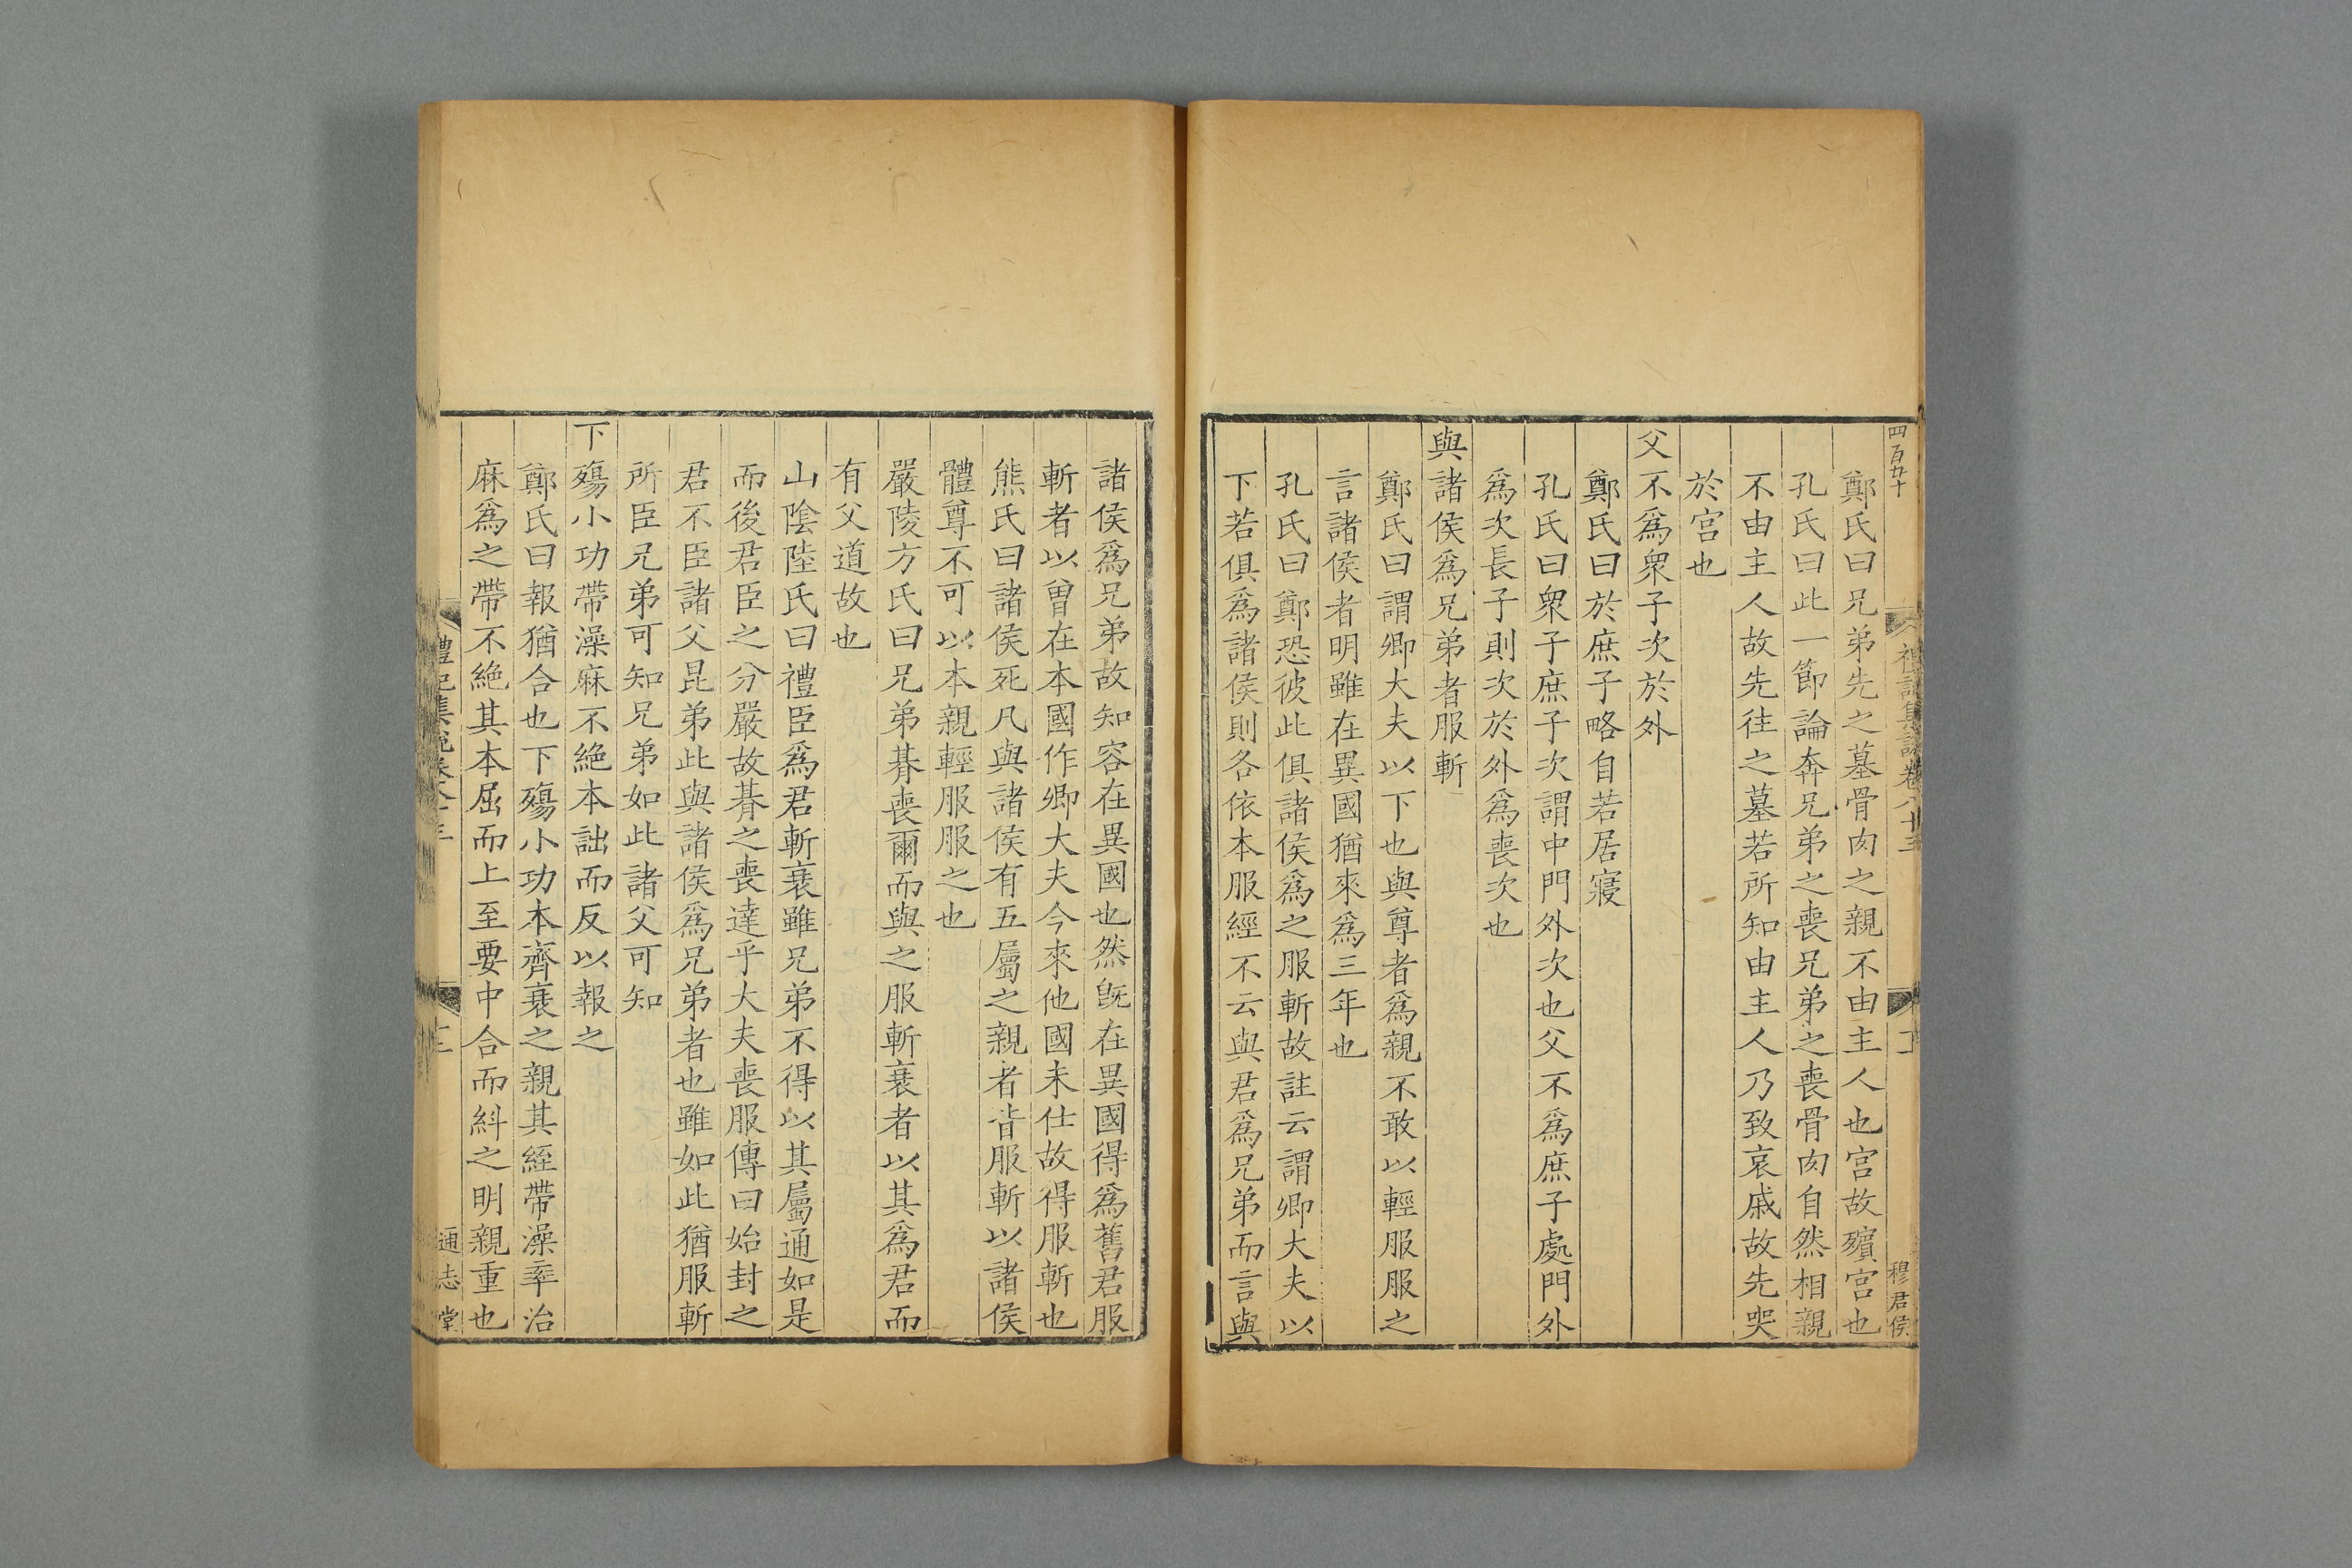 四百九十
禮記集說卷八十三
穆君侯
鄭氏曰兄弟先之墓骨肉之親不由主人也宫故殯宫也
孔氏曰此一節論奔兄弟之喪兄弟之喪骨肉自然相親
不由主人故先往之墓若所知由主人乃致哀戚故先哭
於宫也
父不爲衆子次於外
鄭氏曰於庶子略自若居寢
孔氏曰衆子庶子次謂中門外次也父不爲庶子處門外
爲次長子則次於外爲喪次也
與諸侯爲兄弟者服斬
鄭氏曰謂卿大夫以下也與尊者爲親不敢以輕服服之
言諸侯者明雖在異國猶來爲三年也
孔氏曰鄭恐彼此俱諸侯爲之服斬故註云謂卿大夫以
下若俱爲諸侯則各依本服經不云與君爲兄弟而言與
諸侯爲兄弟故知容在異國也然旣在異國得爲舊君服
斬者以曾在本國作卿大夫今來他國未仕故得服斬也
熊氏曰諸侯死凡與諸侯有五屬之親者皆服斬以諸侯
體尊不可以本親輕服服之也
嚴陵方氏曰兄弟朞喪爾而與之服斬衰者以其爲君而
有父道故也
山陰陸氏曰禮臣爲君斬衰雖兄弟不得以其屬通如是
而後君臣之分嚴故朞之喪達乎大夫喪服傳曰始封之
君不臣諸父昆弟此與諸侯爲兄弟者也雖如此猶服斬
所臣兄弟可知兄弟如此諸父可知
下殤小功帶澡麻不絶本詘而反以報之
鄭氏曰報猶合也下殤小功本齊衰之親其絰帶澡率治
麻爲之帶不絶其本屈而上至要中合而糾之明親重也
禮記集說卷八十三
通志堂